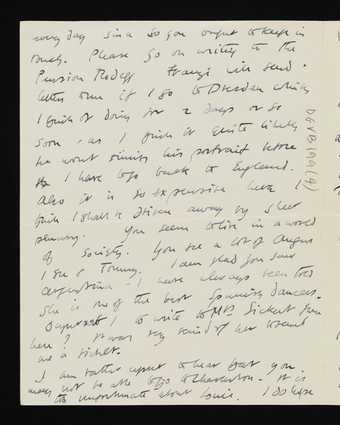 every day since so you ought to keep in
touch. Please go on writing to the
Pension Franzi will send
letters on if I go to Dresden which
I think of doing for 2 days or so
soon, as I think it quite likely
he won't finish his portrait before
I have to go back to England.
Also it is so expensive here I
think I shall be driven away by sheer
penury. You seem to live in a world
of Society. You see a lot of Angus
I see & Tommy. I am glad you saw
Argentina - I have always been told
she is one of the best Spanish dancers.
Ought I to write to Mrs. Sickert from
here? It was very kind of her to send
me a ticket.
I am rather upset to hear that you
may not be able to go to Charleston. It is
unfortunate about Louie. I do hope
DGVB (9)